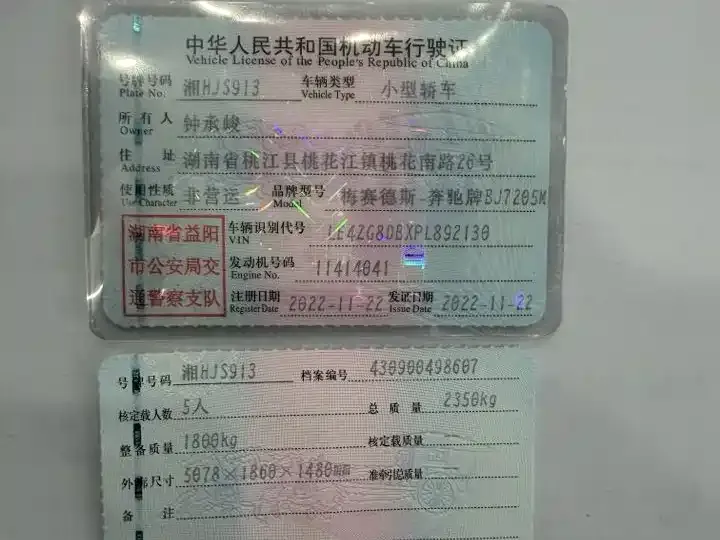 中华人民共和国机动车行驶证
Vehicle License of the People's Republic of China
号牌号码 湘HJS913 车辆类型 小型轿车
Plate No. Vehicle Type
所有人 钟承峻
Owner
住址 湖南省桃江县桃花江镇桃花南路26号
Address
使用性质 非营运 品牌型号 梅赛德斯-奔驰牌BJ7205M
Use Character Model
湖南省益阳
市公安局交
通警察支队
车辆识别代号 LE4ZG8DBXPL892130
VIN
发动机号码 11414041
Engine No.
注册日期 2022-11-22 发证日期 2022-11-22
Register Date Issue Date
号牌号码 湘HJS913 档案编号 430900498607
核定载人数 5人 总质量 2350kg
整备质量 1800kg 核定载质量
外廓尺寸 5078×1860×1480mm 准牵引总质量
备注